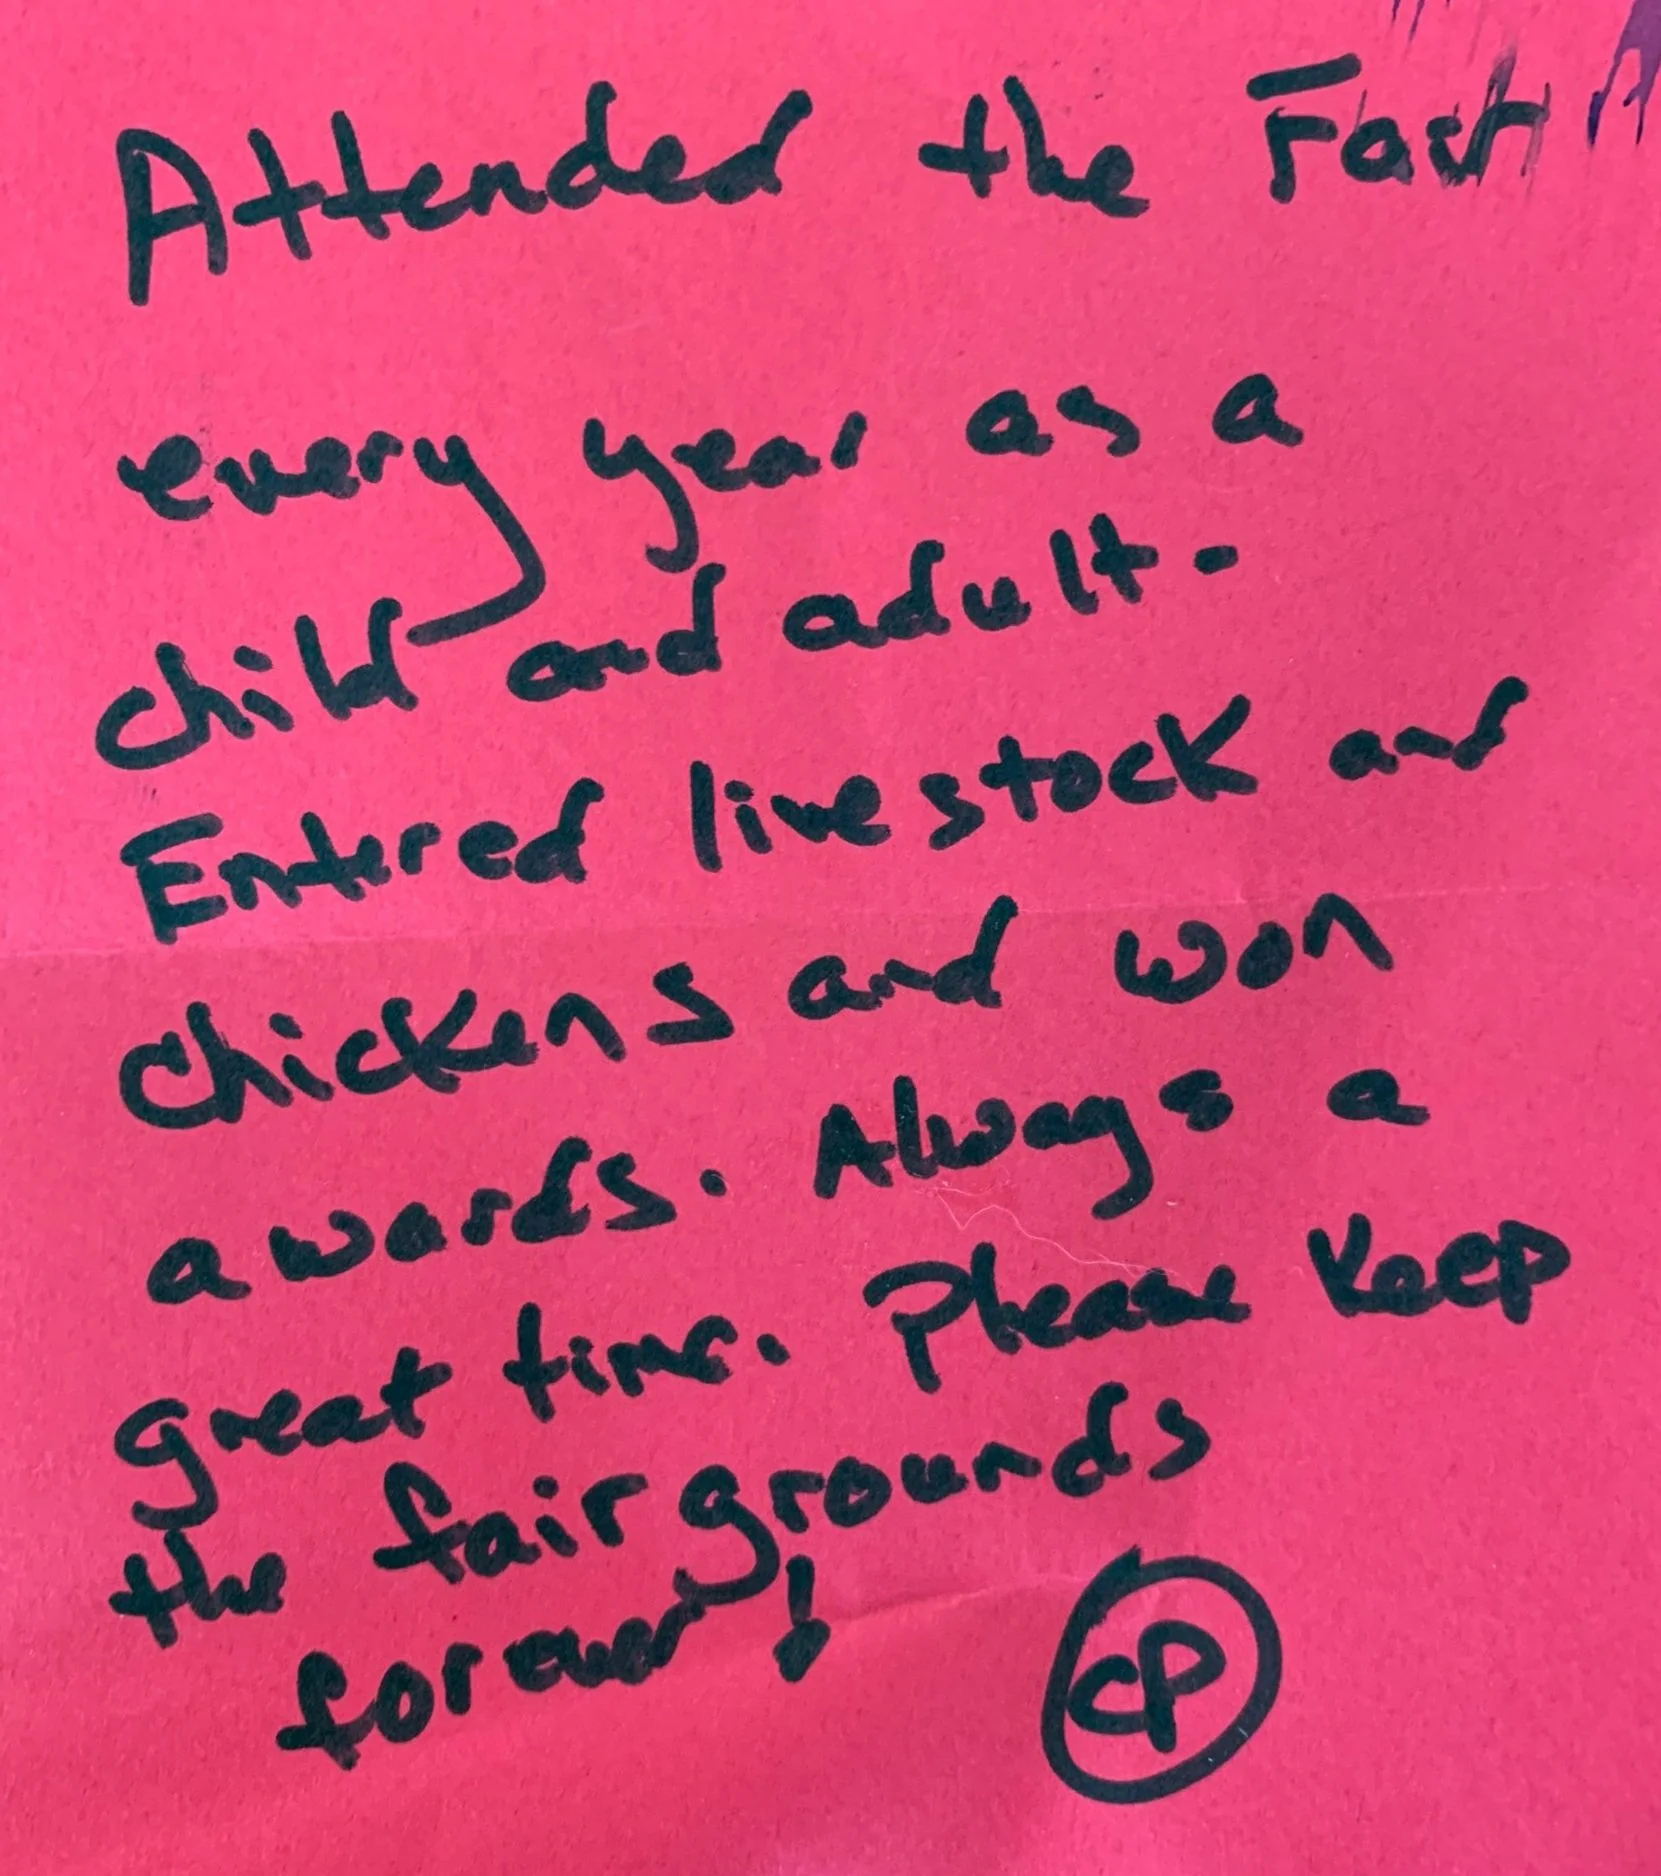 Attended the Fair
every year as a
child and adult.
Entered livestock and
chickens and won
awards. Always a
great time. Please Keep
the fairgrounds
forever!
CP